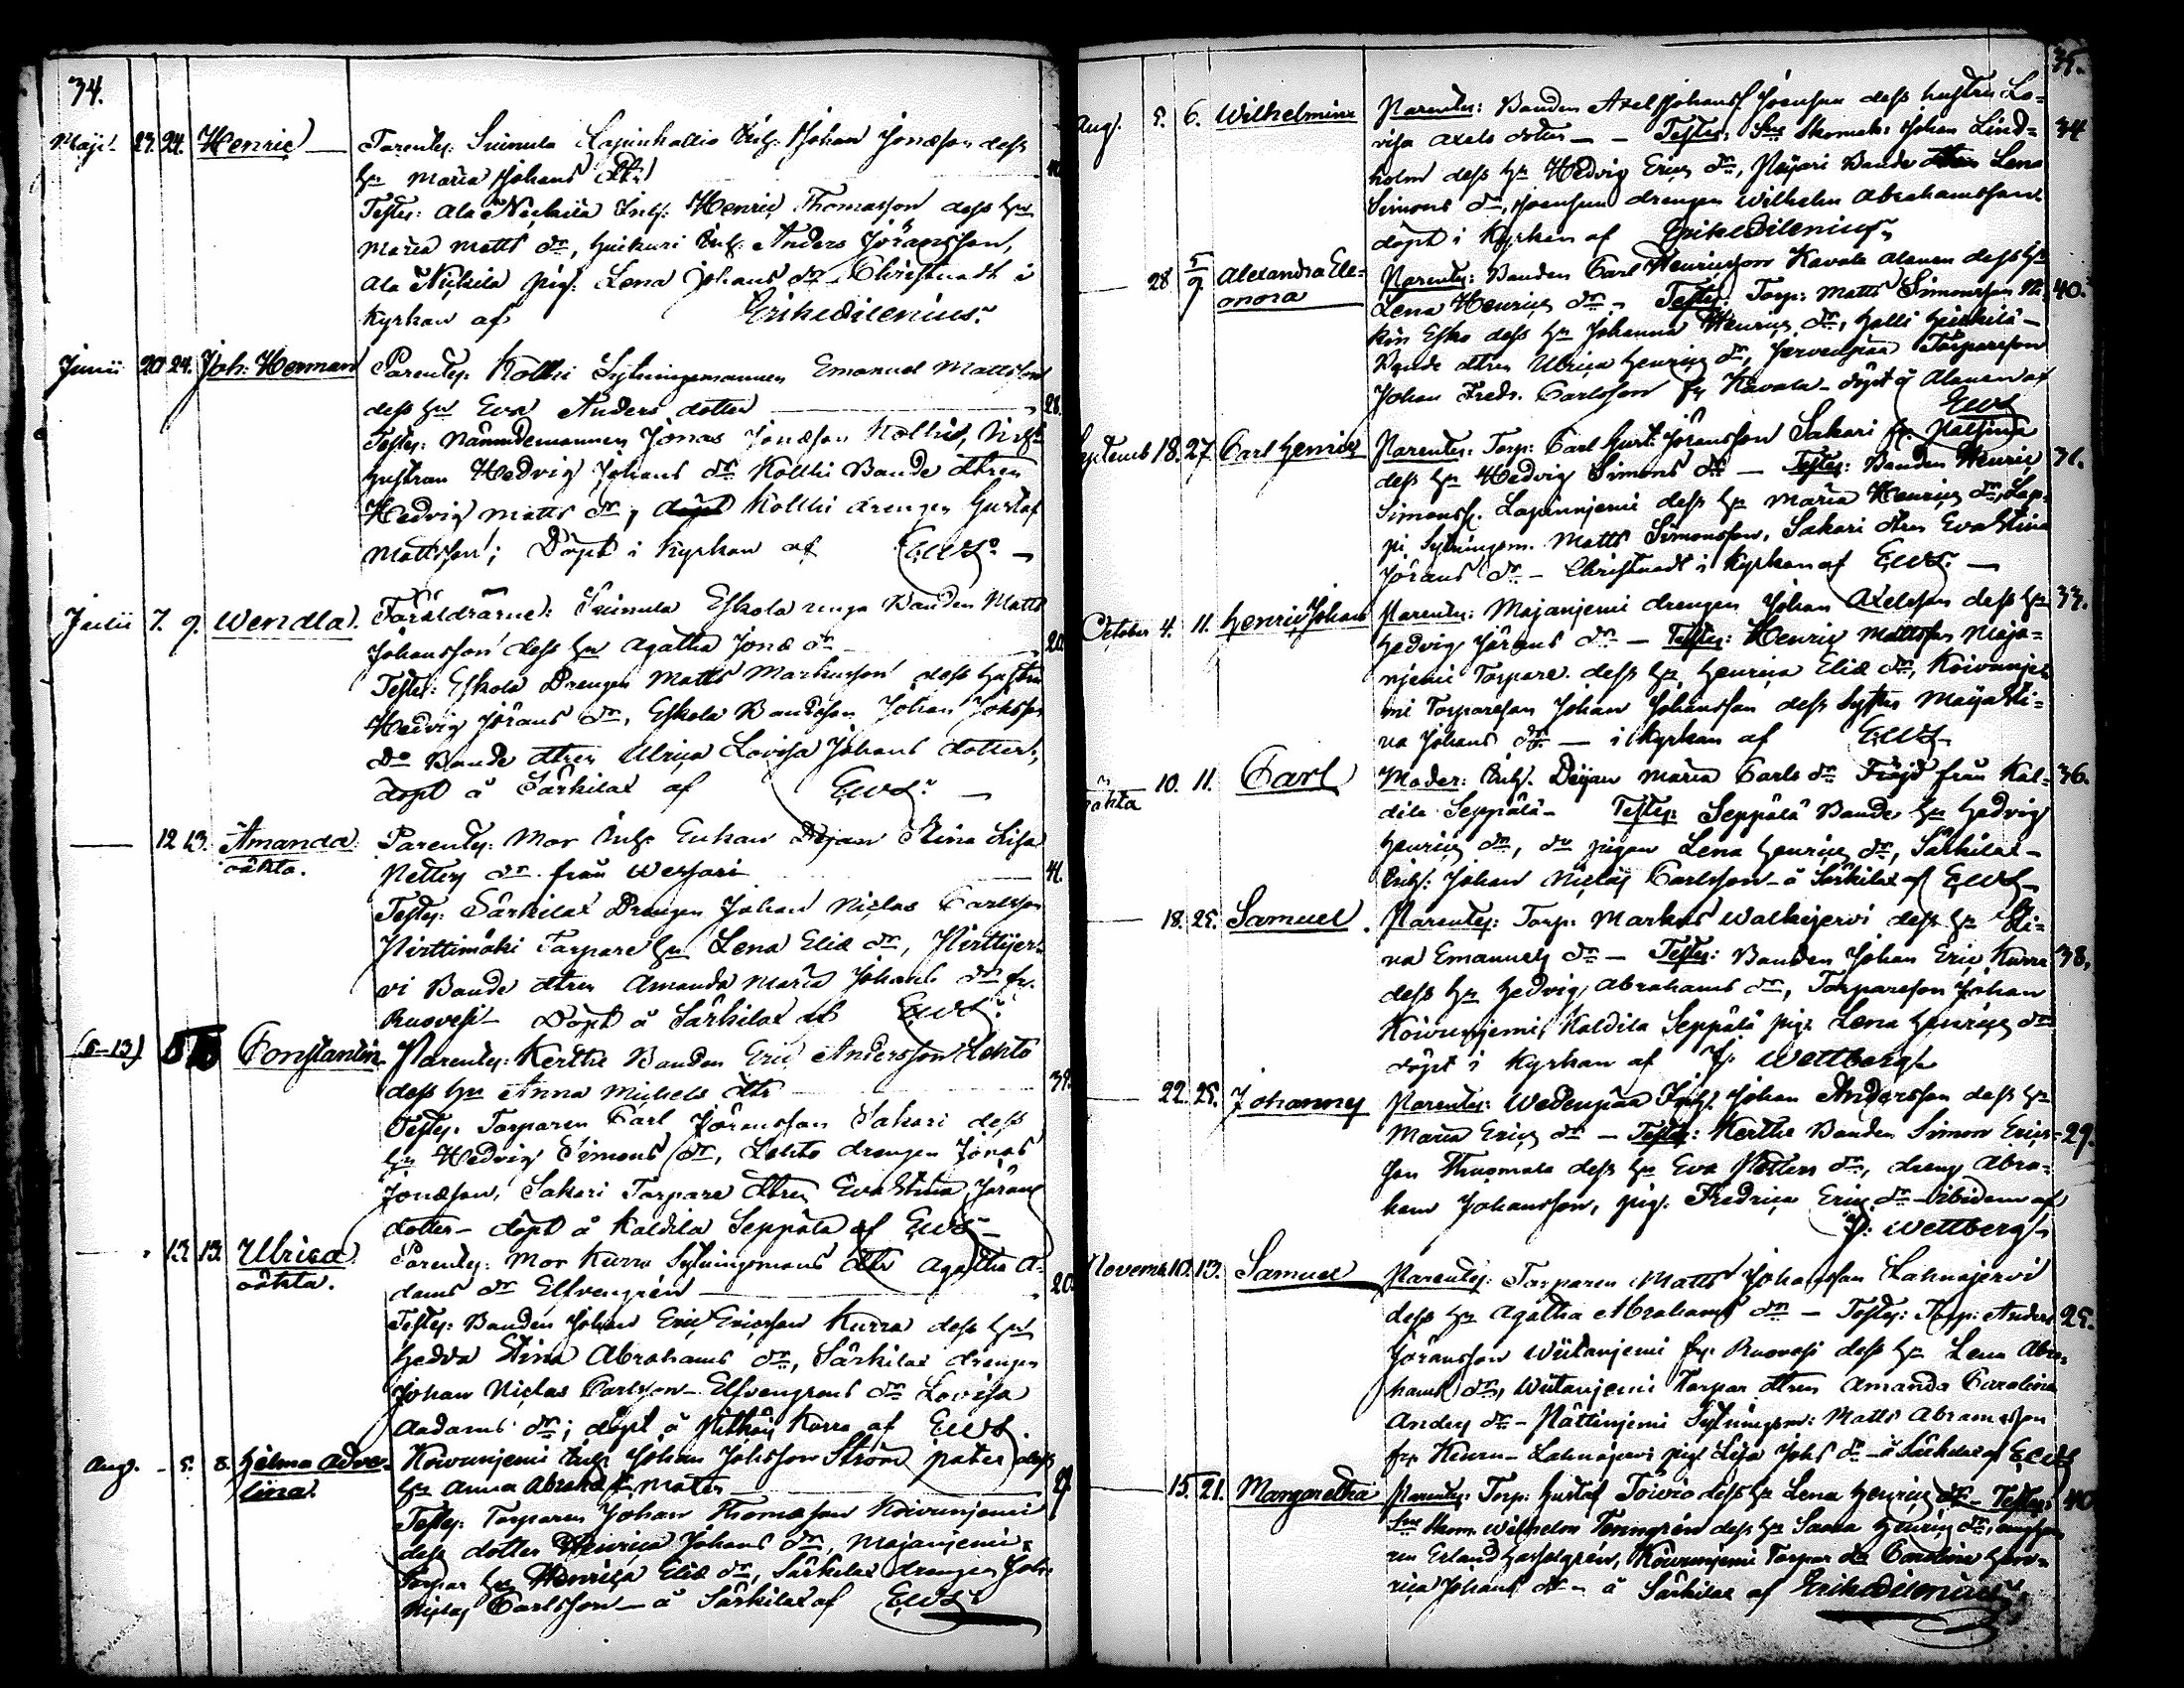 34.
Maji 23. 24. Henric Parentes: Suinula Lapinkallio Inhs: Johan Jonæson dess
hu Maria Johans dtr
Testes: Ala Nuckila Inhs: Henric Thomasson dess hu
Maria Matts dr, Inhs: Anders Jöransson,
Ala Nuckila pig. Lena Johans dr Christnadt i
Kyrkan af
Junii 20 24. Joh: Herman Parentes: Kolkki Sytningsmannen Emanuel Mattsson
dess hu Eva Anders dotter 28.
Testes: Nämndemannen Jonas Jonæson Kolkki, Inhs
hustrun Hedvig Johans dr Kolkki Bonde dtren
Hedvig Matts dr, Kolkki drengen Gustaf
Mattsson; Döpt i Kyrkan af EWS
Julii 7. 9. Wendla. Föräldrarne: Suinula Eskola unga Bonden Matts
Johansson dess hu Agatha Jonæ dr 20
Testes: Eskola Drengen Matts Markusson dess hustru
Hedvig Jörans dr, Eskola Bondeson Johan Johsson
Do Bonde dtren Ulrica Lovisa Johans dotter,
döpt å Särkilax af EWS
12 13. Amanda Parentes: Mor Inhs Enkan Stina Lisa
oäkta. från Wessari 41.
Testes: Särkilax Drengen Johan Niclas Carlsson
Pirttimäki Torpare hu Lena Eliæ dr, Pirttijer-
vi Bonde dtren Amanda Maria Johans dr fr.
Ruovesi Döpt å Särkilax af EWS
(5-13) Constantin Parentes: Kerthe Bonden Eric Andersson Lehto
dess hu Anna Michels dtr 39.
Testes: Torparen Carl Jöransson Sakari dess
hu Hedvig Simons dr, Lehto drengen Jonas
Jonæson, Sakari Torpare dtren Eva Stina Jörans
dotter döpt å Kaldila Seppälä af EWS
13. 13. Ulrica Parentes: Mor Kurra Sytningsmans dtr Agatha A-
oäkta. dams dr Elfvengrén 20
Testes: Bonden Johan Eric Ericsson Kurra dess hu
Hedda Stina Abrahams dr, Särkilax drengen
Johan Niclas Carlsson Elfvengrens dr Lovisa
Aadams dr; döpt å Kurra af EWS
Aug. 5. 8. Helma Adve- Koivunjemi Inhs Johan Johsson Ström pater dess
lina. hu Anna Abrah: dr mater 27
Testes: Torparen Johan Thomæson Koivunjemi
dess dotter Henrica Johans dr, Majanjemi
Torpar hu Henrica Eliæ dr, Särkilax drengen Joh:
Niclas Carlsson å Särkilax af EWS
35.
Aug. 5. 6. Wilhelmina Parentes: Bonden Axel Johanss Joensuu dess hustru Lo-
visa Axels dotter Testes: Skomak: Johan Lind- 34
holm dess hu Hedvig Erics dr, Bonde Lena
Simons dr, Joensuu drengen Wilhelm Abrahamsson
döpt i Kyrkan af
28 5/9 Alexandra Ele- Parentes: Bonden Carl Henricsson Kavala Alanen dess hu
onora Lena Henrics dr Testes: Torp: Matts Simonsson 40.
Esko dess hu Johanna Henrics dr, Halli
Bonde dtren Ulrica Henrics dr, Torpareson
Johan Fredr. Carlsson fr Kavala döpt å Alanen af
EWS
Septemb 18. 27. Carl Henric Parentes: Torp: Carl Gust: Jöransson Sakari fr.
dess hu Hedvig Simons dr Testes: Bonden Henric 31.
Simonss. Lapinnjemi dess hu Maria Henrics dr, Lap-
pi Sytningsm. Matts Simonsson, Sakari dtren Eva Stina
Jörans dr Christnadt i Kyrkan af EWS.
October 4. 11. Henric Johan Parentes: Majanjemi drengen Johan Axelsson dess hu 33.
Hedvig Jörans dr Testes: Henric Mattsson Maja-
njemi Torpare dess hu Henrica Eliæ dr, Koivunje-
mi Torpareson Johan Johansson dess syster Maija Sti-
na Johans dr i Kyrkan af EWS
10. 11. Carl Moder: Inhs. Maria Carls dr Fröjd från Kal- 36.
oäkta dila Seppälä Testes: Seppälä Bonde hu Hedvig
Henrics dr, do pigan Lena Henrics dr, Särkilax
Inhs: Johan Niclas Carlsson å Särkilax af EWS
18. 25. Samuel. Parentes: Torp: Markus Walkijervi dess hu Sti-
na Emanuels dr Testes: Bonden Johan Eric Kurra 38.
dess hu Hedvig Abrahams dr, Torpareson Johan
Koivunjemi, Kaldila Seppälä pig. Lena Henrics dr
döpt i Kyrkan af J: Wettberg
22. 25. Johannes Parentes: Wedenpää Inhs. Johan Andersson dess hu
Maria Erics dr Testes: Kerthe Bonden Simon Erics- 29.
son dess hu Eva dr, dreng Abra-
ham Johansson, pig. Fredrica Erics dr ibidem af
J: Wettberg
Novemb. 10. 13. Samuel Parentes: Torparen Matts Johansson Lahnajervi
dess hu Agatha Abrahams dr Testes: Torp: Anders 25.
Jöransson Wiitanjemi fr. Ruovesi dess hu Lena Abra-
hams dr, Wiitanjemi Torpar dtren Amanda Carolina
Anders dr Sytningsm: Matts Abramsson
fr Lahnajervi pig Lisa Johs dr å Särkilax af EWS
15. 21. Margaretha Parentes: Torp: Gustaf Toivio dess hu Lena Henrics dr Testes: 40
Skom. Wilhelm Tenngrén dess hu Saara Henrics dr,
Erland, Koivunjemi Torpar dr Carolina Hen-
rica Johans dr å Särkilax af